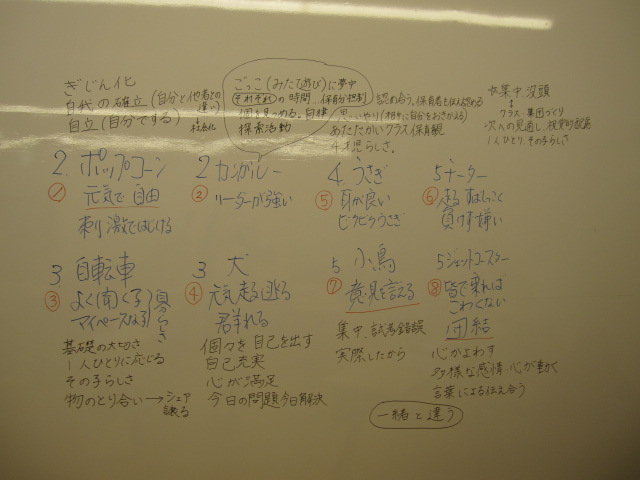 ぎじん化
自我の確立(自分と他者との違い)
自立(自分でする) 社会化
ごっこ(みたて遊び)に夢中
それぞれの時間…保育分担制
個を見つめる。自律
探索活動
認め合う、保育者も伝え認める
思いやり(相手に自分をおきかえる)
あたたかいクラス保育観
4才児らしさ。
集中 没頭
クラス集団づくり
次への見通し、視覚的配慮
1人ひとり、その子らしさ
2. ポップコーン
① 元気で自由
刺激ではじける
2 カンガルー
② リーダーが強い
4. うさぎ
⑤ 耳が良い
ビクビクうさぎ
5 チーター
⑥ 走る すばしっこく
負けず嫌い
3 自転車
③ よく(聞)く子
マイペースな子
自分らしさ
基礎の大切さ
1人ひとりに応じる
その子らしさ
物のとり合い→シェア
譲る
3 犬
④ 元気 走る 逃る
群れる
個々を自己を出す
自己充実
心が満足
今日の問題今日解決
5 小鳥
⑦ 意見を言える
集中、試行錯誤
実際したから
5 ジェットコースター
⑧ 皆で乗れば
こわくない
団結
心かよわす
多様な感情 心が動く
言葉による伝え合う
一緒と違う